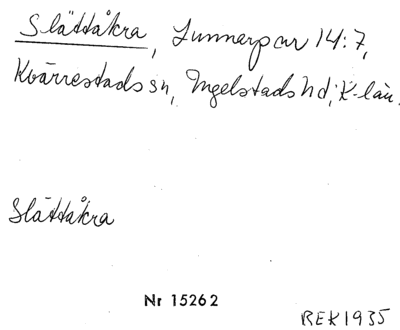 Slättåkra, Lunnarp nr 14:7,
Kvärrestads sn, Ingelstads hd, K-län.
Slättåkra
Nr 15262
BEK 1935